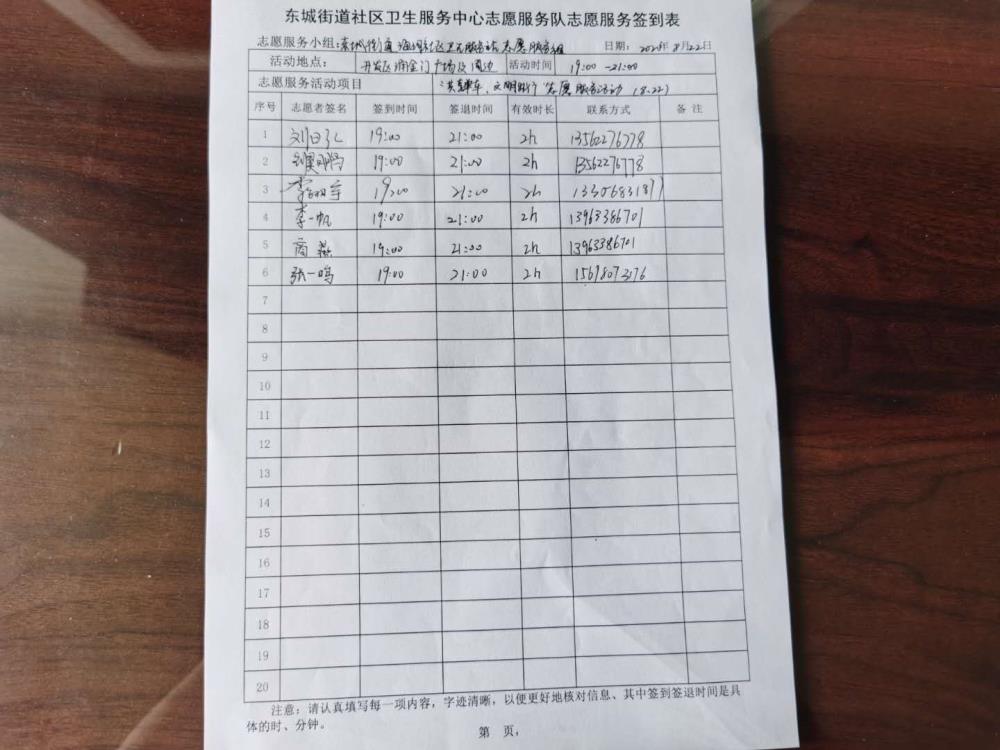 东城街道社区卫生服务中心志愿服务队志愿服务签到表
志愿服务小组:东城街道 社区卫生服务站志愿服务组 日期: 8月22日
活动地点: 开发区 金门广场及周边 活动时间 19:00-21:00
志愿服务活动项目 "共享单车,文明出行"志愿服务活动 (8.22)
序号 志愿者签名 签到时间 签退时间 有效时长 联系方式 备 注
1 19:00 21:00 2h 13562276778
2 19:00 21:00 2h 13562276778
3 19:00 21:00 2h
4 李一帆 19:00 21:00 2h 13963386701
5 商燕 19:00 21:00 2h 13963386701
6 张一鸣 19:00 21:00 2h
7
8
9
10
11
12
13
14
15
16
17
18
19
20
注意:请认真填写每一项内容,字迹清晰,以便更好地核对信息、其中签到签退时间是具
体的时、分钟。
第 页,